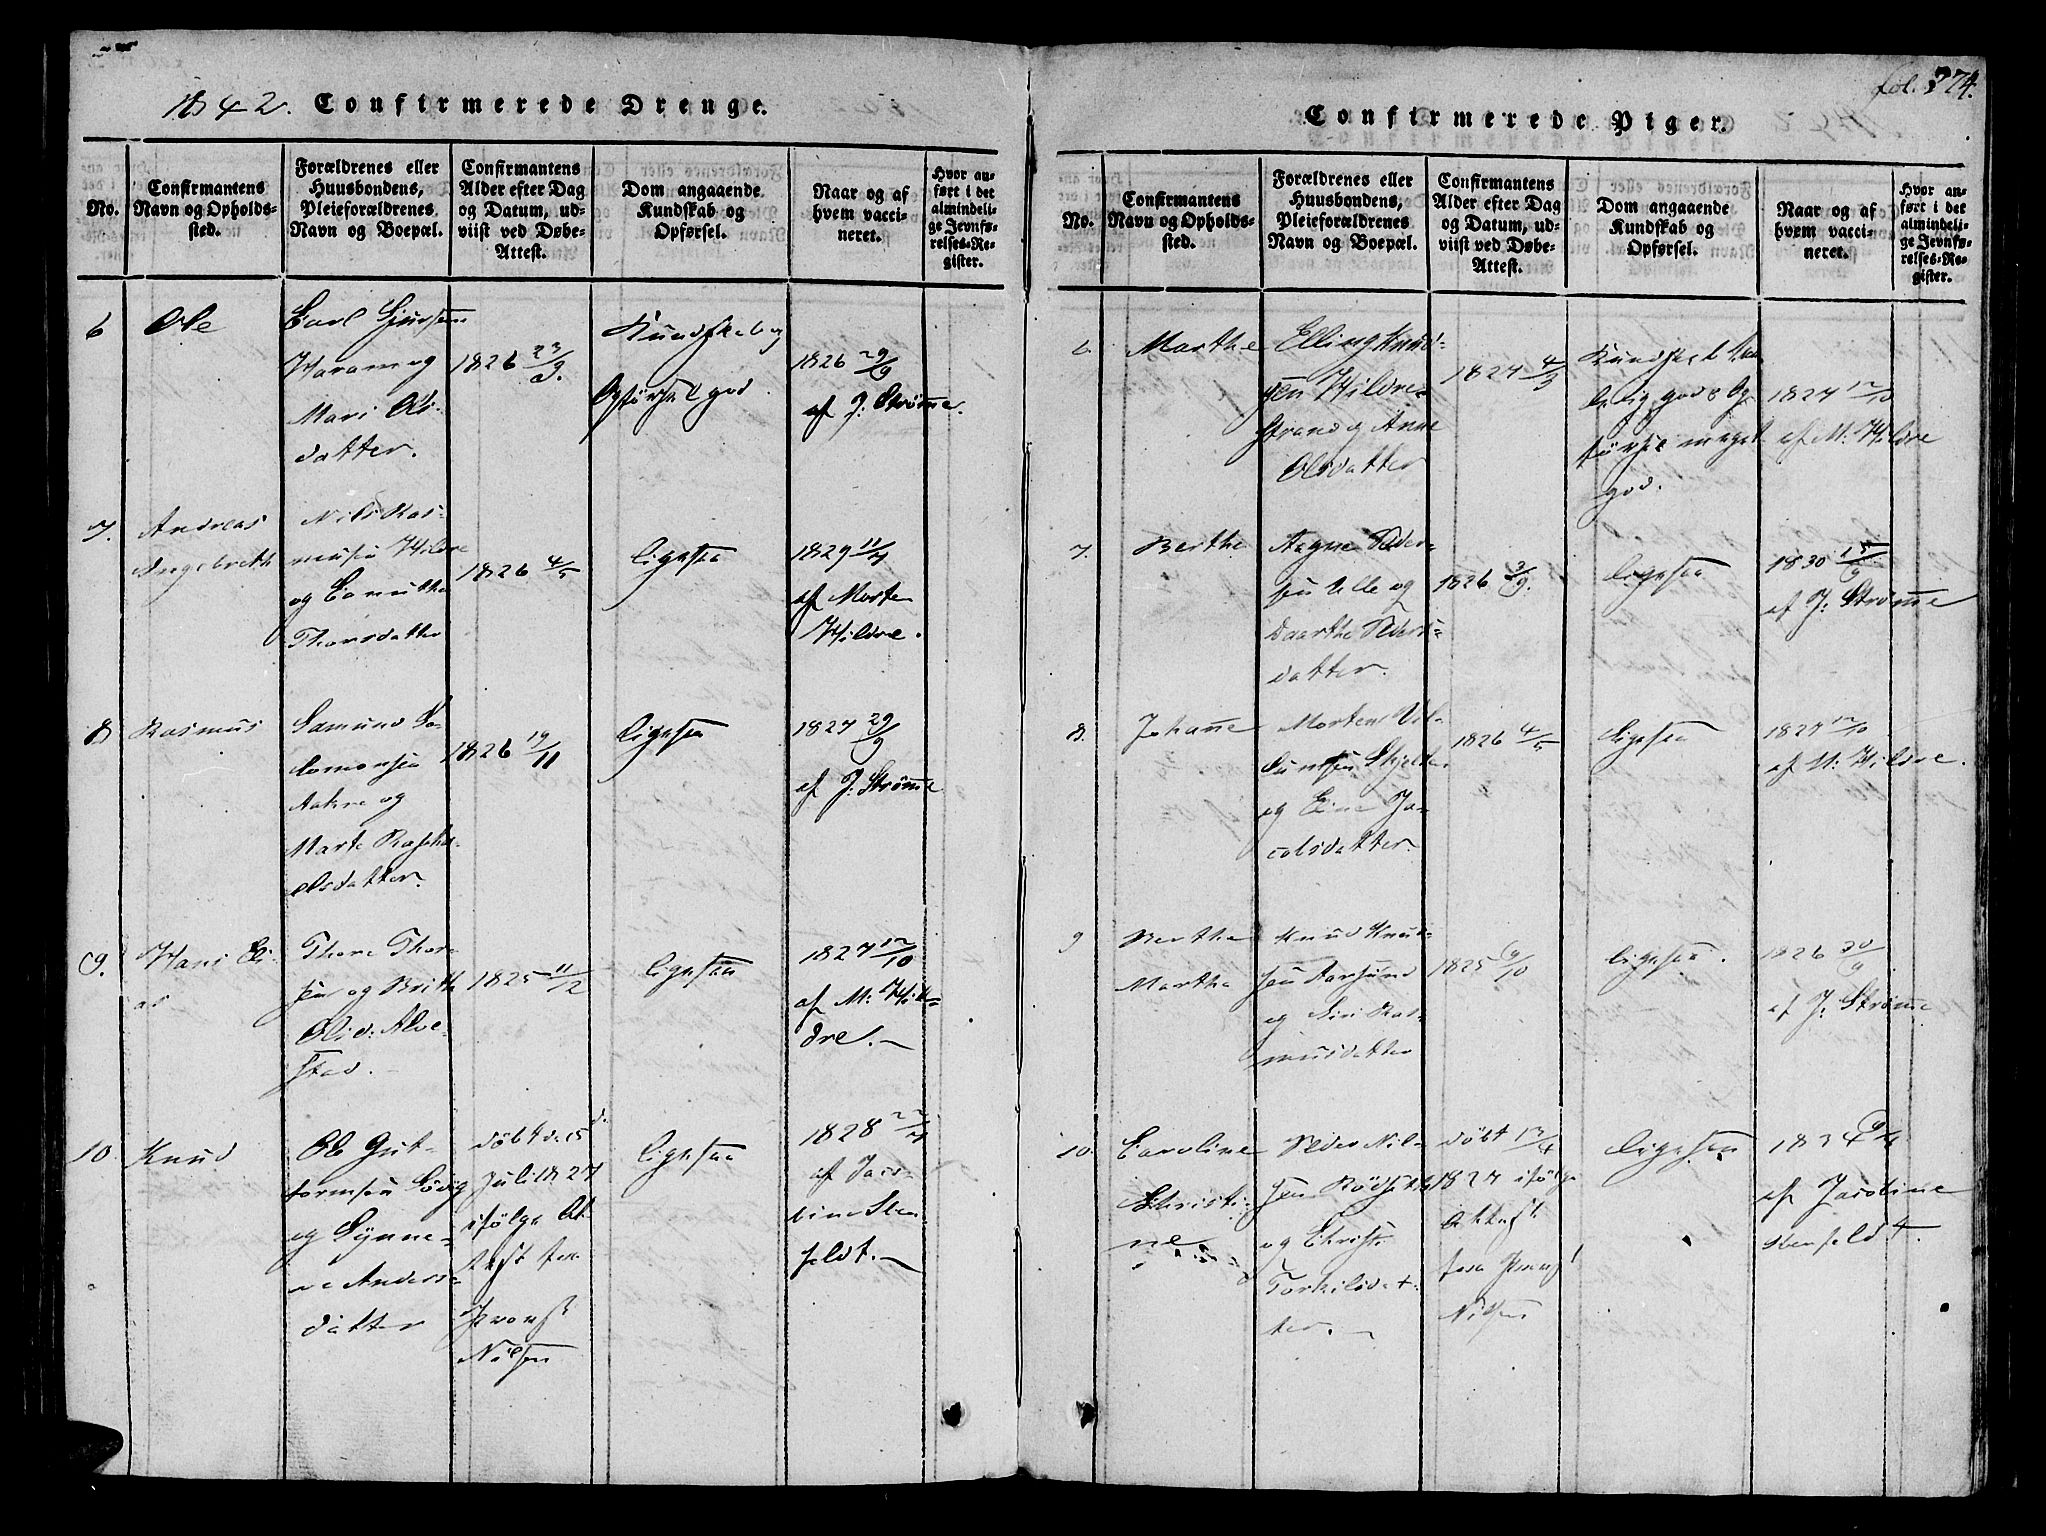 1842. Confirmerede Drenge.
No.
Confirmantens
Navn og Opholds-
sted.
Forældrenes eller
Huusbondens,
Pleieforældrenes
Navn og Boepæl.
Confirmantens
Alder efter Dag
og Datum, ud-
viist ved Døbe-
Attest.
Dom angaaende
Kundskab og
Opførsel.
Naar og af
hvem vacci-
neret.
Hvor an-
ført i det
almindeli-
ge Jevnfø-
relses-Re-
gister.
6
Ole
Carl Sjursen
Haram og
Mari Ols-
datter.
1826 23/9.
Kundskab og
Opførsel god.
1826 29/9
af J: Strømme.
7.
Andreas
Ingebreth
Nils Ras-
musen Hildre
og
Thorsdatter
1826 4/5
ligesaa
1829 11/7
af Morten
Hildre.
8
Rasmus
Samund Sa-
lomonsen
Aakre og
Marte Rapha-
elsdatter.
1826 19/11
ligesaa
1827 29/9
af J: Strømme
9.
Hans Eli-
as
Thore Thor-
sen og Brith
Olsd: Alve-
stad.
1825 11/12
ligesaa
1827 12/10
af M: Hil-
dre.
10
Knud
Ole Gut-
tormsen Søvig
og Synne-
ve Anders-
datter
døbt d. 15 d.
Juli 1827
ifølge At-
test fra
Provst
Nilsen
ligesaa
1828 22/7
af Jaco-
bine Sten-
feldt.
fol. 374.
Confirmerede Piger.
No.
Confirmantens
Navn og Opholds-
sted.
Forældrenes eller
Huusbondens,
Pleieforældrenes
Navn og Boepæl.
Confirmantens
Alder efter Dag
og Datum, ud-
viist ved Døbe-
Attest.
Dom angaaende
Kundskab og
Opførsel.
Naar og af
hvem vacci-
neret.
Hvor an-
ført i det
almindeli-
ge Jevnfø-
relses-Re-
gister.
6
Marthe
Elling Knud-
sen Hildre-
strand og Anne
Olsdatter
1827 4/3
Kundskab tem-
melig god & Op-
førsel meget
god.
1827 12/10
af M: Hildre
7.
Berthe
Aagne Peder-
sen Ulle og
Daarthe Peders-
datter.
1826 3/9.
ligesaa
1830 15/9
af J: Strømme
8.
Johanne
Morten
Skjelten
og Eline Ja-
cobsdatter.
1826 4/5
ligesaa
1827 12/10
af M: Hildre.
9
Berthe
Martha
Knud Knud-
sen Aarsund
og Siri Ras-
musdatter
1825 9/10
ligesaa.
1826 30/9
af J: Strømme
10
Caroline
Christi-
ne
Peder Nil-
sen Rødseth
og Christi
Torkilsdat-
ter.
døbt 13/4
1827 ifølge
Attest
fra Provst
Nilsen
ligesaa
1834 9/9
af Jacobine
Stenfeldt.